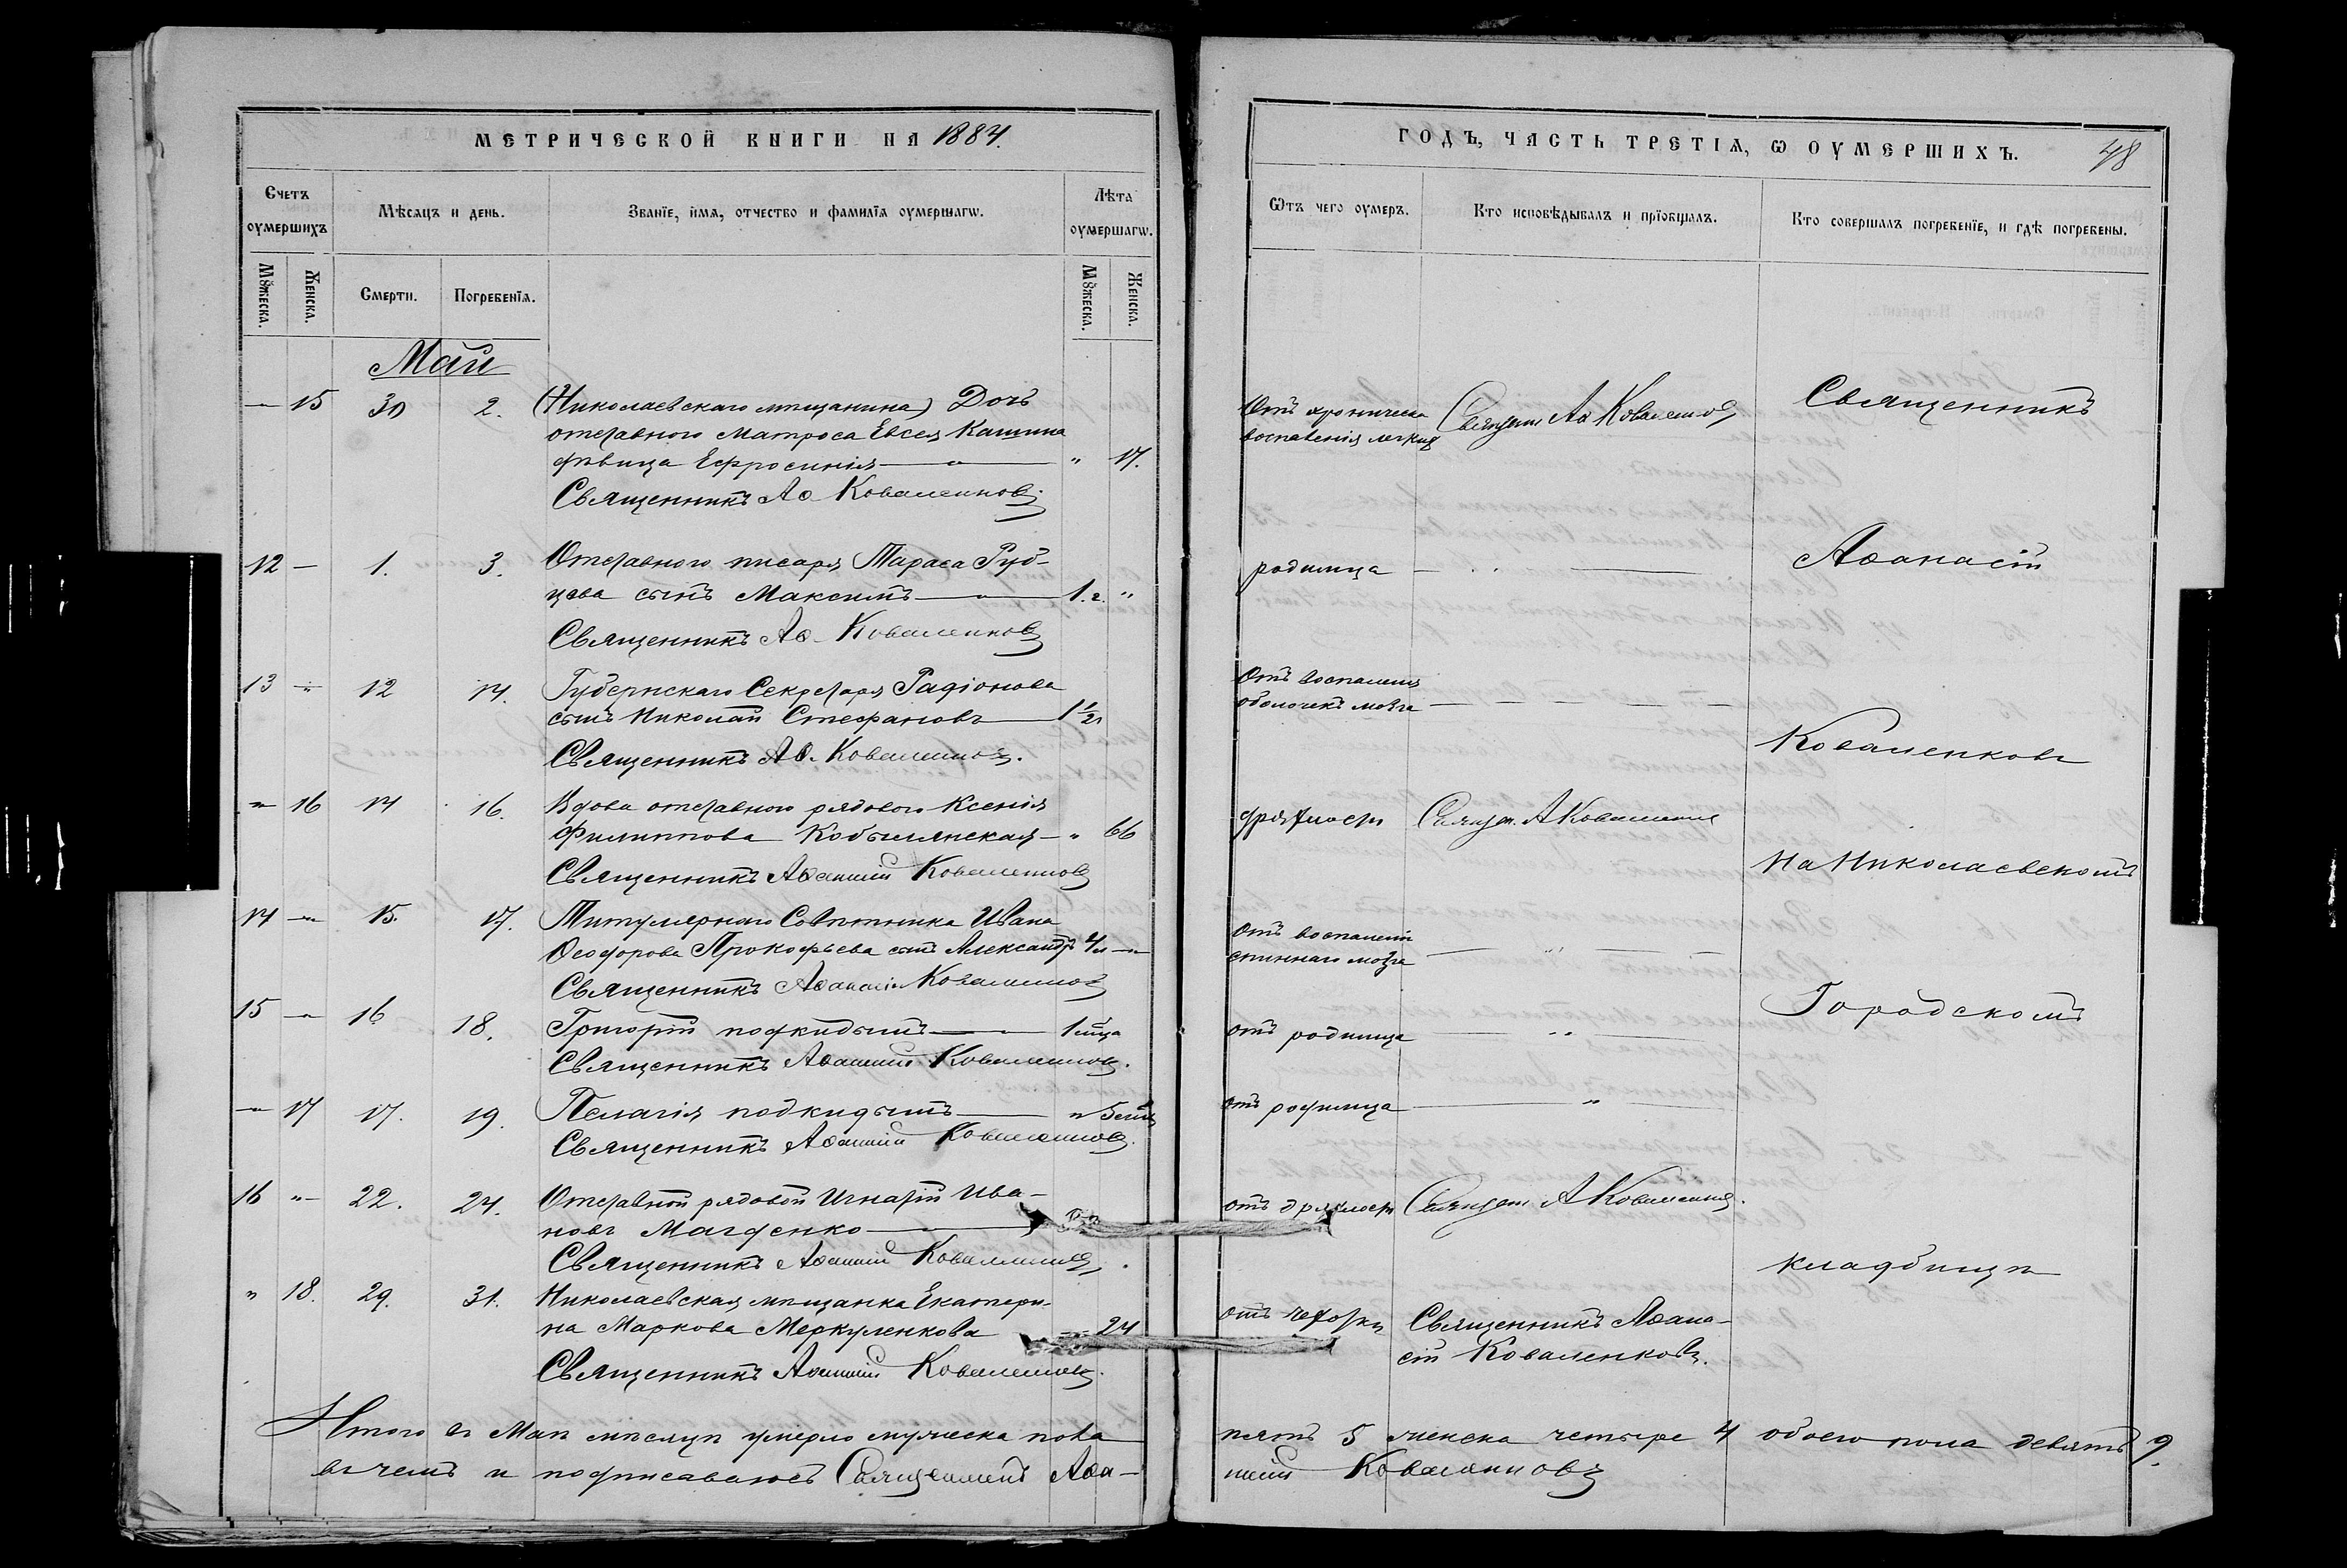 МЕТРИЧЕСКОЙ КНИГИ НА 1884.
Счетъ оумершихъ
Мѣсяцъ и день.
Званїе, имя, отчество и фамилїя оумершагѡ.
Лѣта оумершагѡ.
Мꙋжеска. Женска.
Смерти. Погребенїя.
Мꙋжеска. Женска.
Май
— 15 30 2. (Николаевскаго мѣщанина) Дочь
отставного матроса Евсея Кашина
дѣвица Ефросинія — " 17.
Священникъ Аѳ. Коваленковъ
12 — 1. 3. Отставного писаря Тараса Руб-
цова сынъ Максимъ — 1.г. "
Священникъ Аѳ. Коваленковъ
13 — 12 14. Губернскаго Секретаря Радіонова
сынъ Николай Стефановъ — 1 1/2
Священникъ Аѳ. Коваленковъ.
— 16 14 16. Вдова отставного рядового Ксенія
Филиппова Кобылянская — " 66
Священникъ Аѳанасій Коваленковъ
14 — 15. 17. Титулярнаго Совѣтника Ивана
Ѳеодорова Прокофьева сынъ Александръ 4м —
Священникъ Аѳанасій Коваленковъ
15 — 16 18. Григорій подкидышъ — 1 мѣца
Священникъ Аѳанасій Коваленковъ.
— 17 17. 19. Пелагія подкидышъ — " 5
Священникъ Аѳанасій Коваленковъ.
16 " — 22. 24. Отставной рядовой Игнатій Ива-
новъ Магденко —
Священникъ Аѳанасій Коваленковъ
" 18. 29. 31. Николаевская мѣщанка Екатери-
на Маркова Меркуленкова — 24
Священникъ Аѳанасій Коваленковъ.
Итого въ Маѣ мѣсяцѣ умерло мужеска пола
въ чемъ и подписаваюсь Священникъ Аѳа-
ГОДЪ, ЧАСТЬ ТРЕТІЯ, Ѡ ОУМЕРШИХЪ.
48
Ѿтъ чего оумеръ.
Кто исповѣдывалъ и прїобщалъ.
Кто совершалъ погребенїе, и гдѣ погребены.
Отъ хроническа Священ. Аѳ Коваленковъ Священникъ
воспаленія легкихъ
родимца — Аѳанасій
Отъ воспаленія
оболочекъ мозга —
Коваленковъ
дряхлости Священ. А Коваленковъ
На Николаевскомъ
Отъ воспаленія
спиннаго мозга —
Городскомъ
отъ родимца —
отъ родимца —
отъ дряхлости Священ. А Коваленковъ.
кладбищѣ
отъ чахотки Священникъ Аѳана-
сій Коваленковъ.
пять 5 женска четыре 4 обоего пола девять 9.
насій Коваленковъ